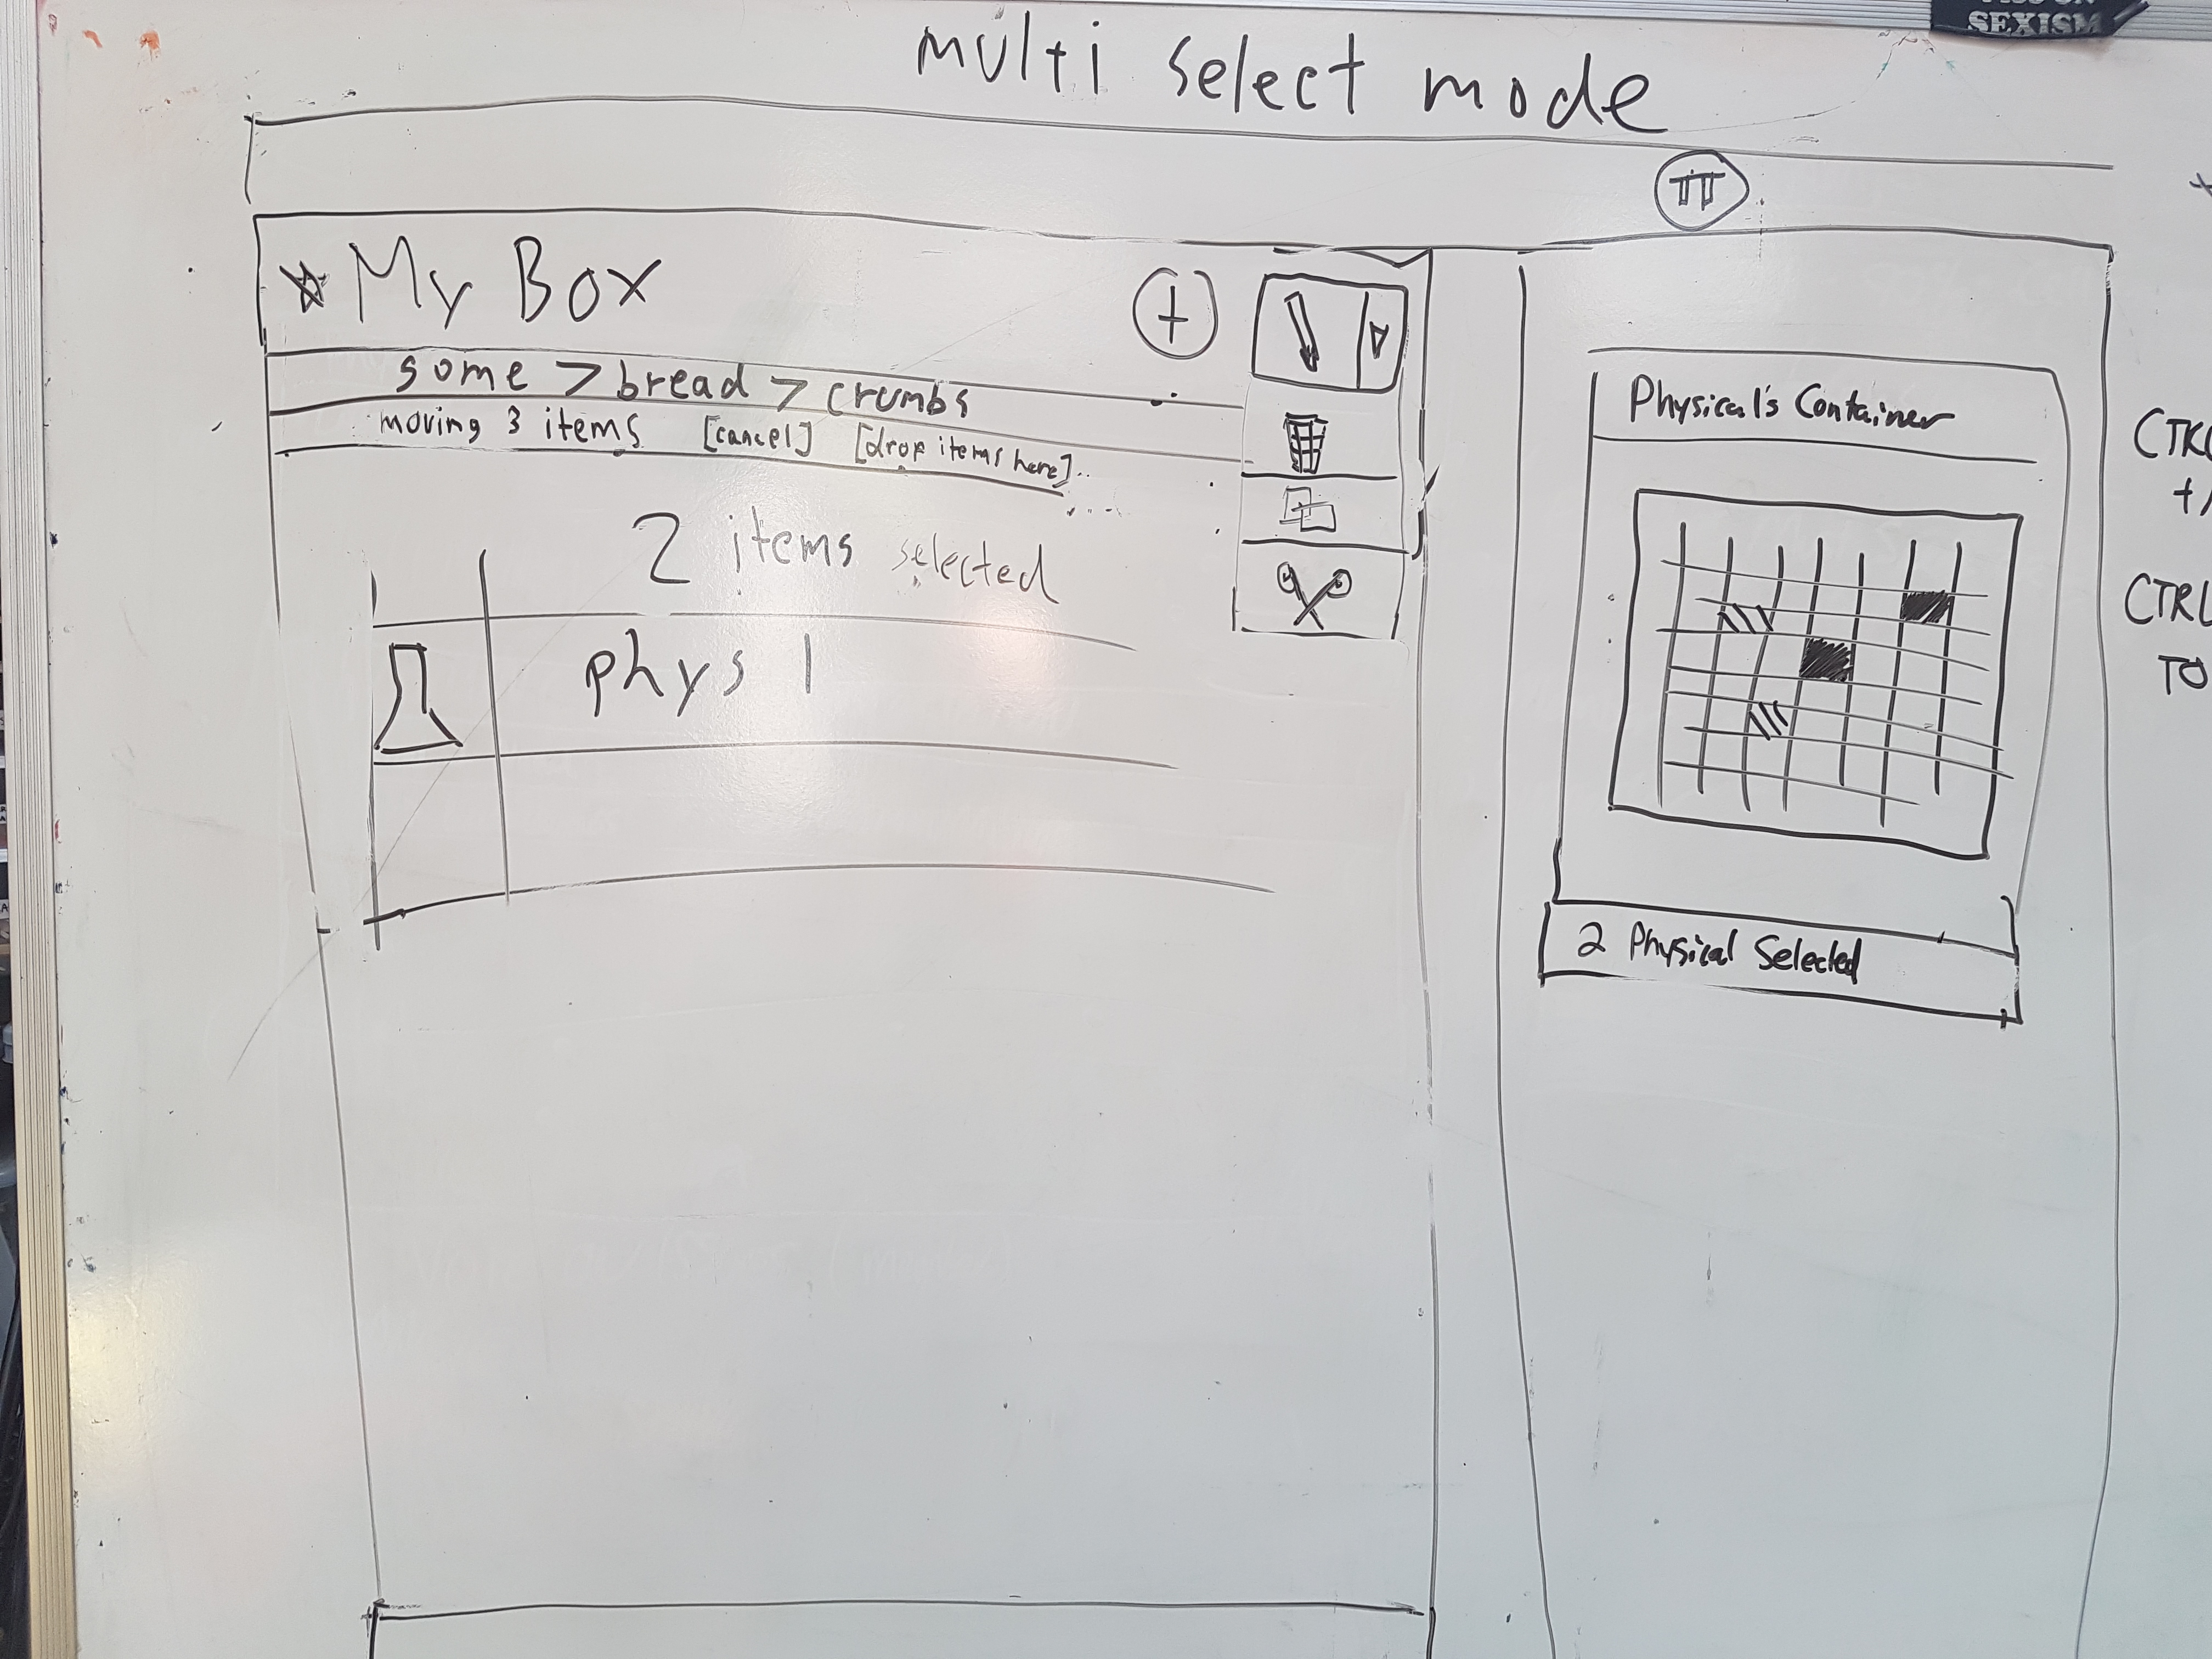 SEXISM
multi select mode
π
My Box
+
some > bread > crumbs
moving 3 items [cancel] [drop items here]..
2 items selected
phys 1
Physical's Container
2 Physical Selected
CTRL
TO